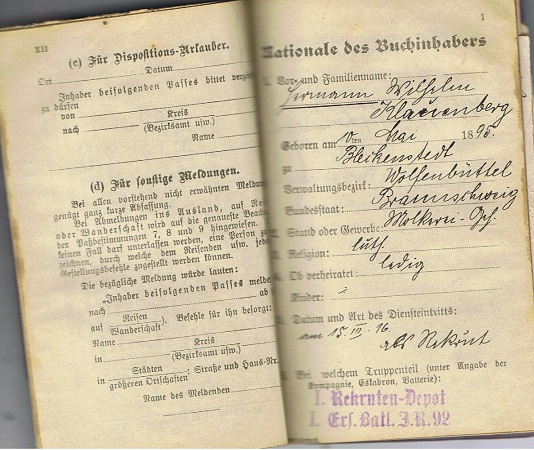 XII
(c) Für Dispositions-Urlauber.
Ort
Datum
Inhaber beifolgenden Passes bittet
zu dürfen
von
Kreis
nach
(Bezirksamt usw.)
Name
(d) Für sonstige Meldungen.
Bei allen vorstehend nicht erwähnten
genügt ganz kurze Abfassung.
Bei Abmeldungen ins Ausland, auf
oder Wanderschaft wird auf die genaueste
der Paßbestimmungen 7, 8 und 9 hingewiesen.
keinen Fall darf unterlassen werden, eine Person zu
zeichnen, durch welche dem Reisenden usw.
Gestellungsbefehle zugestellt werden können.
Die bezügliche Meldung würde lauten:
"Inhaber beifolgenden Passes
nach ab
auf Reisen
Wanderschaft, Befehle für ihn besorgt:
Name
Kreis
in
(Bezirksamt usw.)
in Städten
größeren Ortschaften; Straße und Haus-Nr.
Name des Meldenden
1
Nationale des Buchinhabers
Vor- und Familienname:
Hermann Wilhelm
Klauenberg
Geboren am 10ten Mai 1895.
zu Bleckenstedt
Verwaltungsbezirk: Wolfenbüttel
Bundesstaat: Braunschweig
Stand oder Gewerbe: Molkerei-Geh.
Religion: luth
Ob verheiratet: ledig
Kinder:
Datum und Art des Diensteintritts:
am 15. 16.
als Rekrut
Bei welchem Truppenteil (unter Angabe der
Kompagnie, Eskadron, Batterie):
I. Rekruten-Depot
I. Ers. Batl. J.R. 92